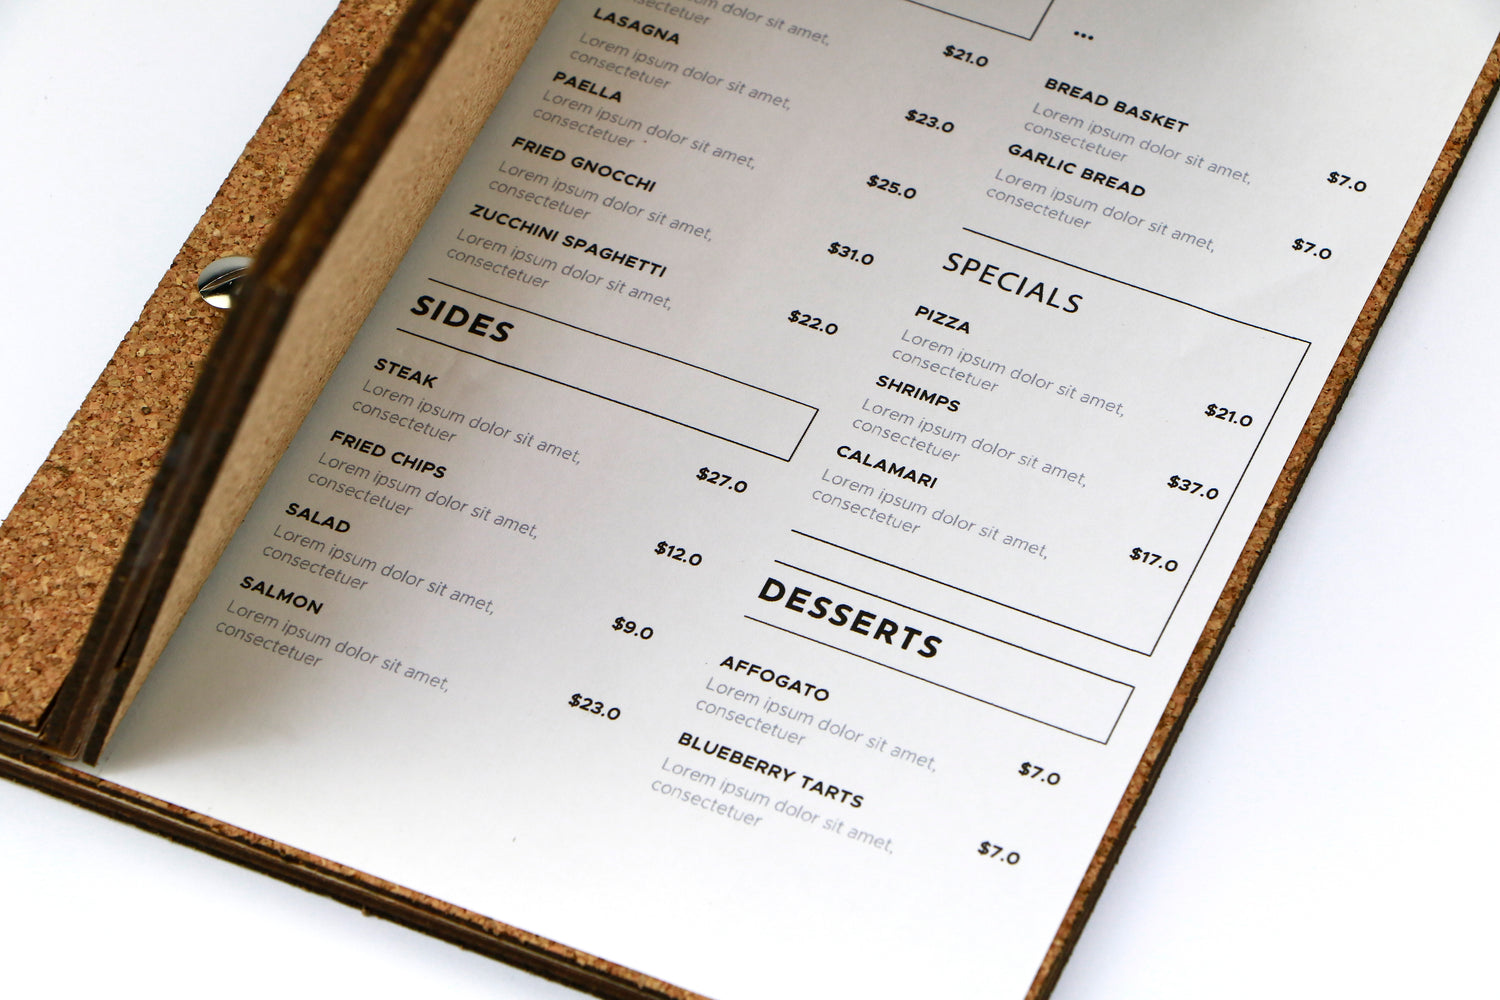 dolor sit amet,
sectetuer
$21.0
LASAGNA
Lorem ipsum dolor sit amet,
consectetuer
$23.0
PAELLA
Lorem ipsum dolor sit amet,
consectetuer
$25.0
FRIED GNOCCHI
Lorem ipsum dolor sit amet,
consectetuer
$31.0
ZUCCHINI SPAGHETTI
Lorem ipsum dolor sit amet,
consectetuer
$22.0
SIDES
STEAK
Lorem ipsum dolor sit amet,
consectetuer
$27.0
FRIED CHIPS
Lorem ipsum dolor sit amet,
consectetuer
$12.0
SALAD
Lorem ipsum dolor sit amet,
consectetuer
$9.0
SALMON
Lorem ipsum dolor sit amet,
consectetuer
$23.0
...
BREAD BASKET
Lorem ipsum dolor sit amet,
consectetuer
$7.0
GARLIC BREAD
Lorem ipsum dolor sit amet,
consectetuer
$7.0
SPECIALS
PIZZA
Lorem ipsum dolor sit amet,
consectetuer
$21.0
SHRIMPS
Lorem ipsum dolor sit amet,
consectetuer
$37.0
CALAMARI
Lorem ipsum dolor sit amet,
consectetuer
$17.0
DESSERTS
AFFOGATO
Lorem ipsum dolor sit amet,
consectetuer
$7.0
BLUEBERRY TARTS
Lorem ipsum dolor sit amet,
consectetuer
$7.0